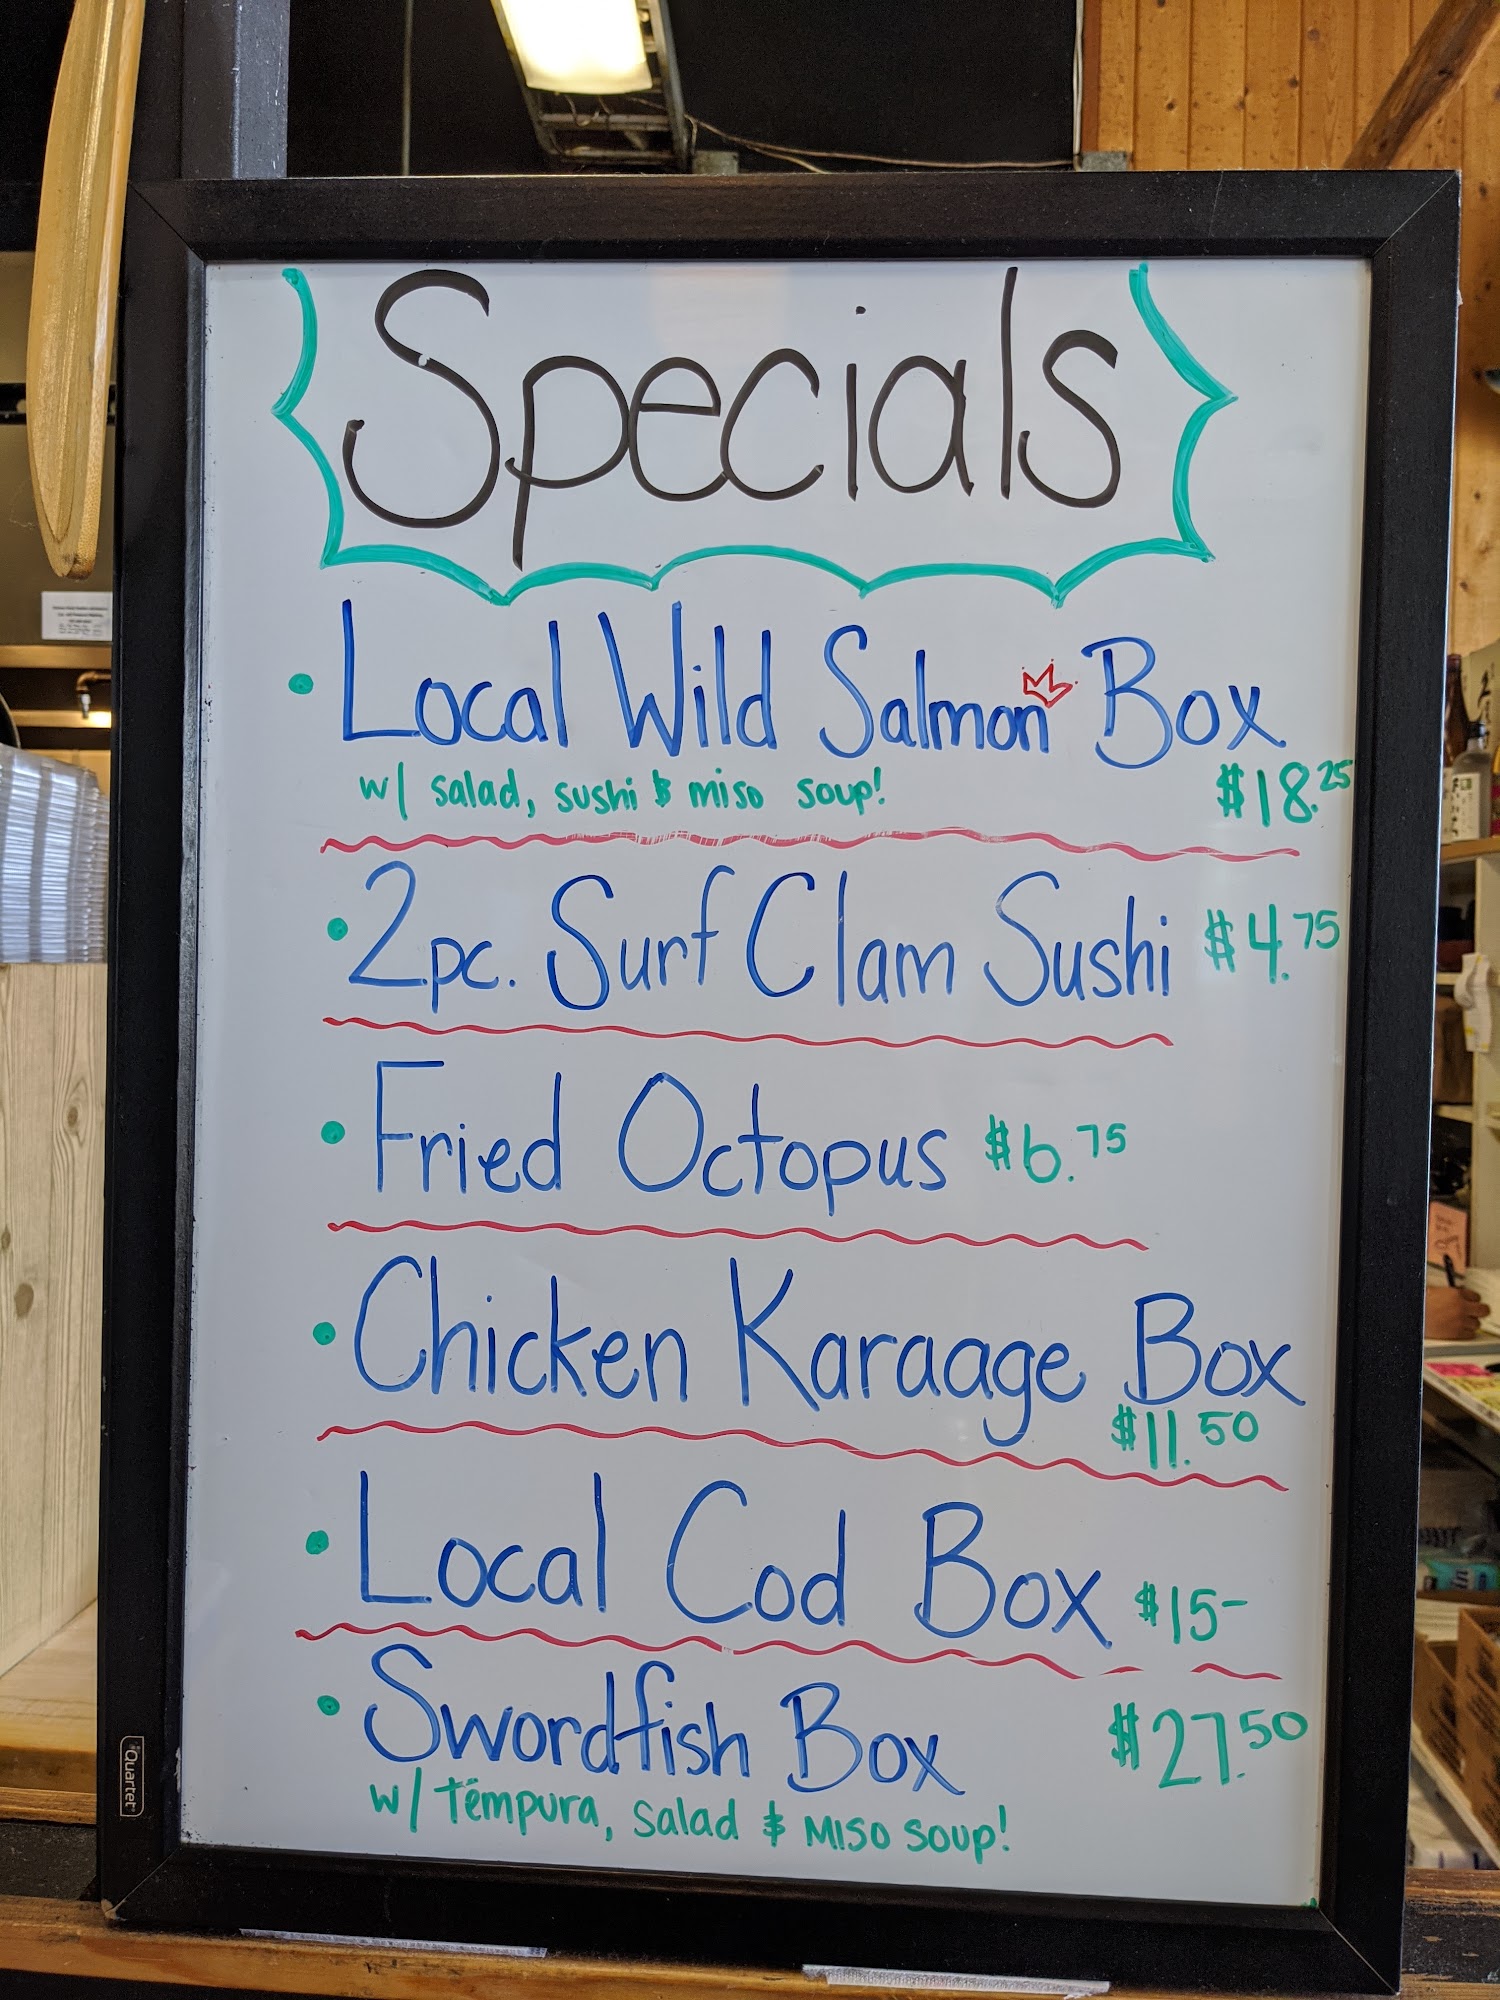 Specials
• Local Wild Salmon Box
w/ salad, sushi & miso soup! $18.25
• 2pc. Surf Clam Sushi $4.75
• Fried Octopus $6.75
• Chicken Karaage Box
$11.50
• Local Cod Box $15-
• Swordfish Box $27.50
w/ Tempura, Salad & MISO SOUP!
Quartet